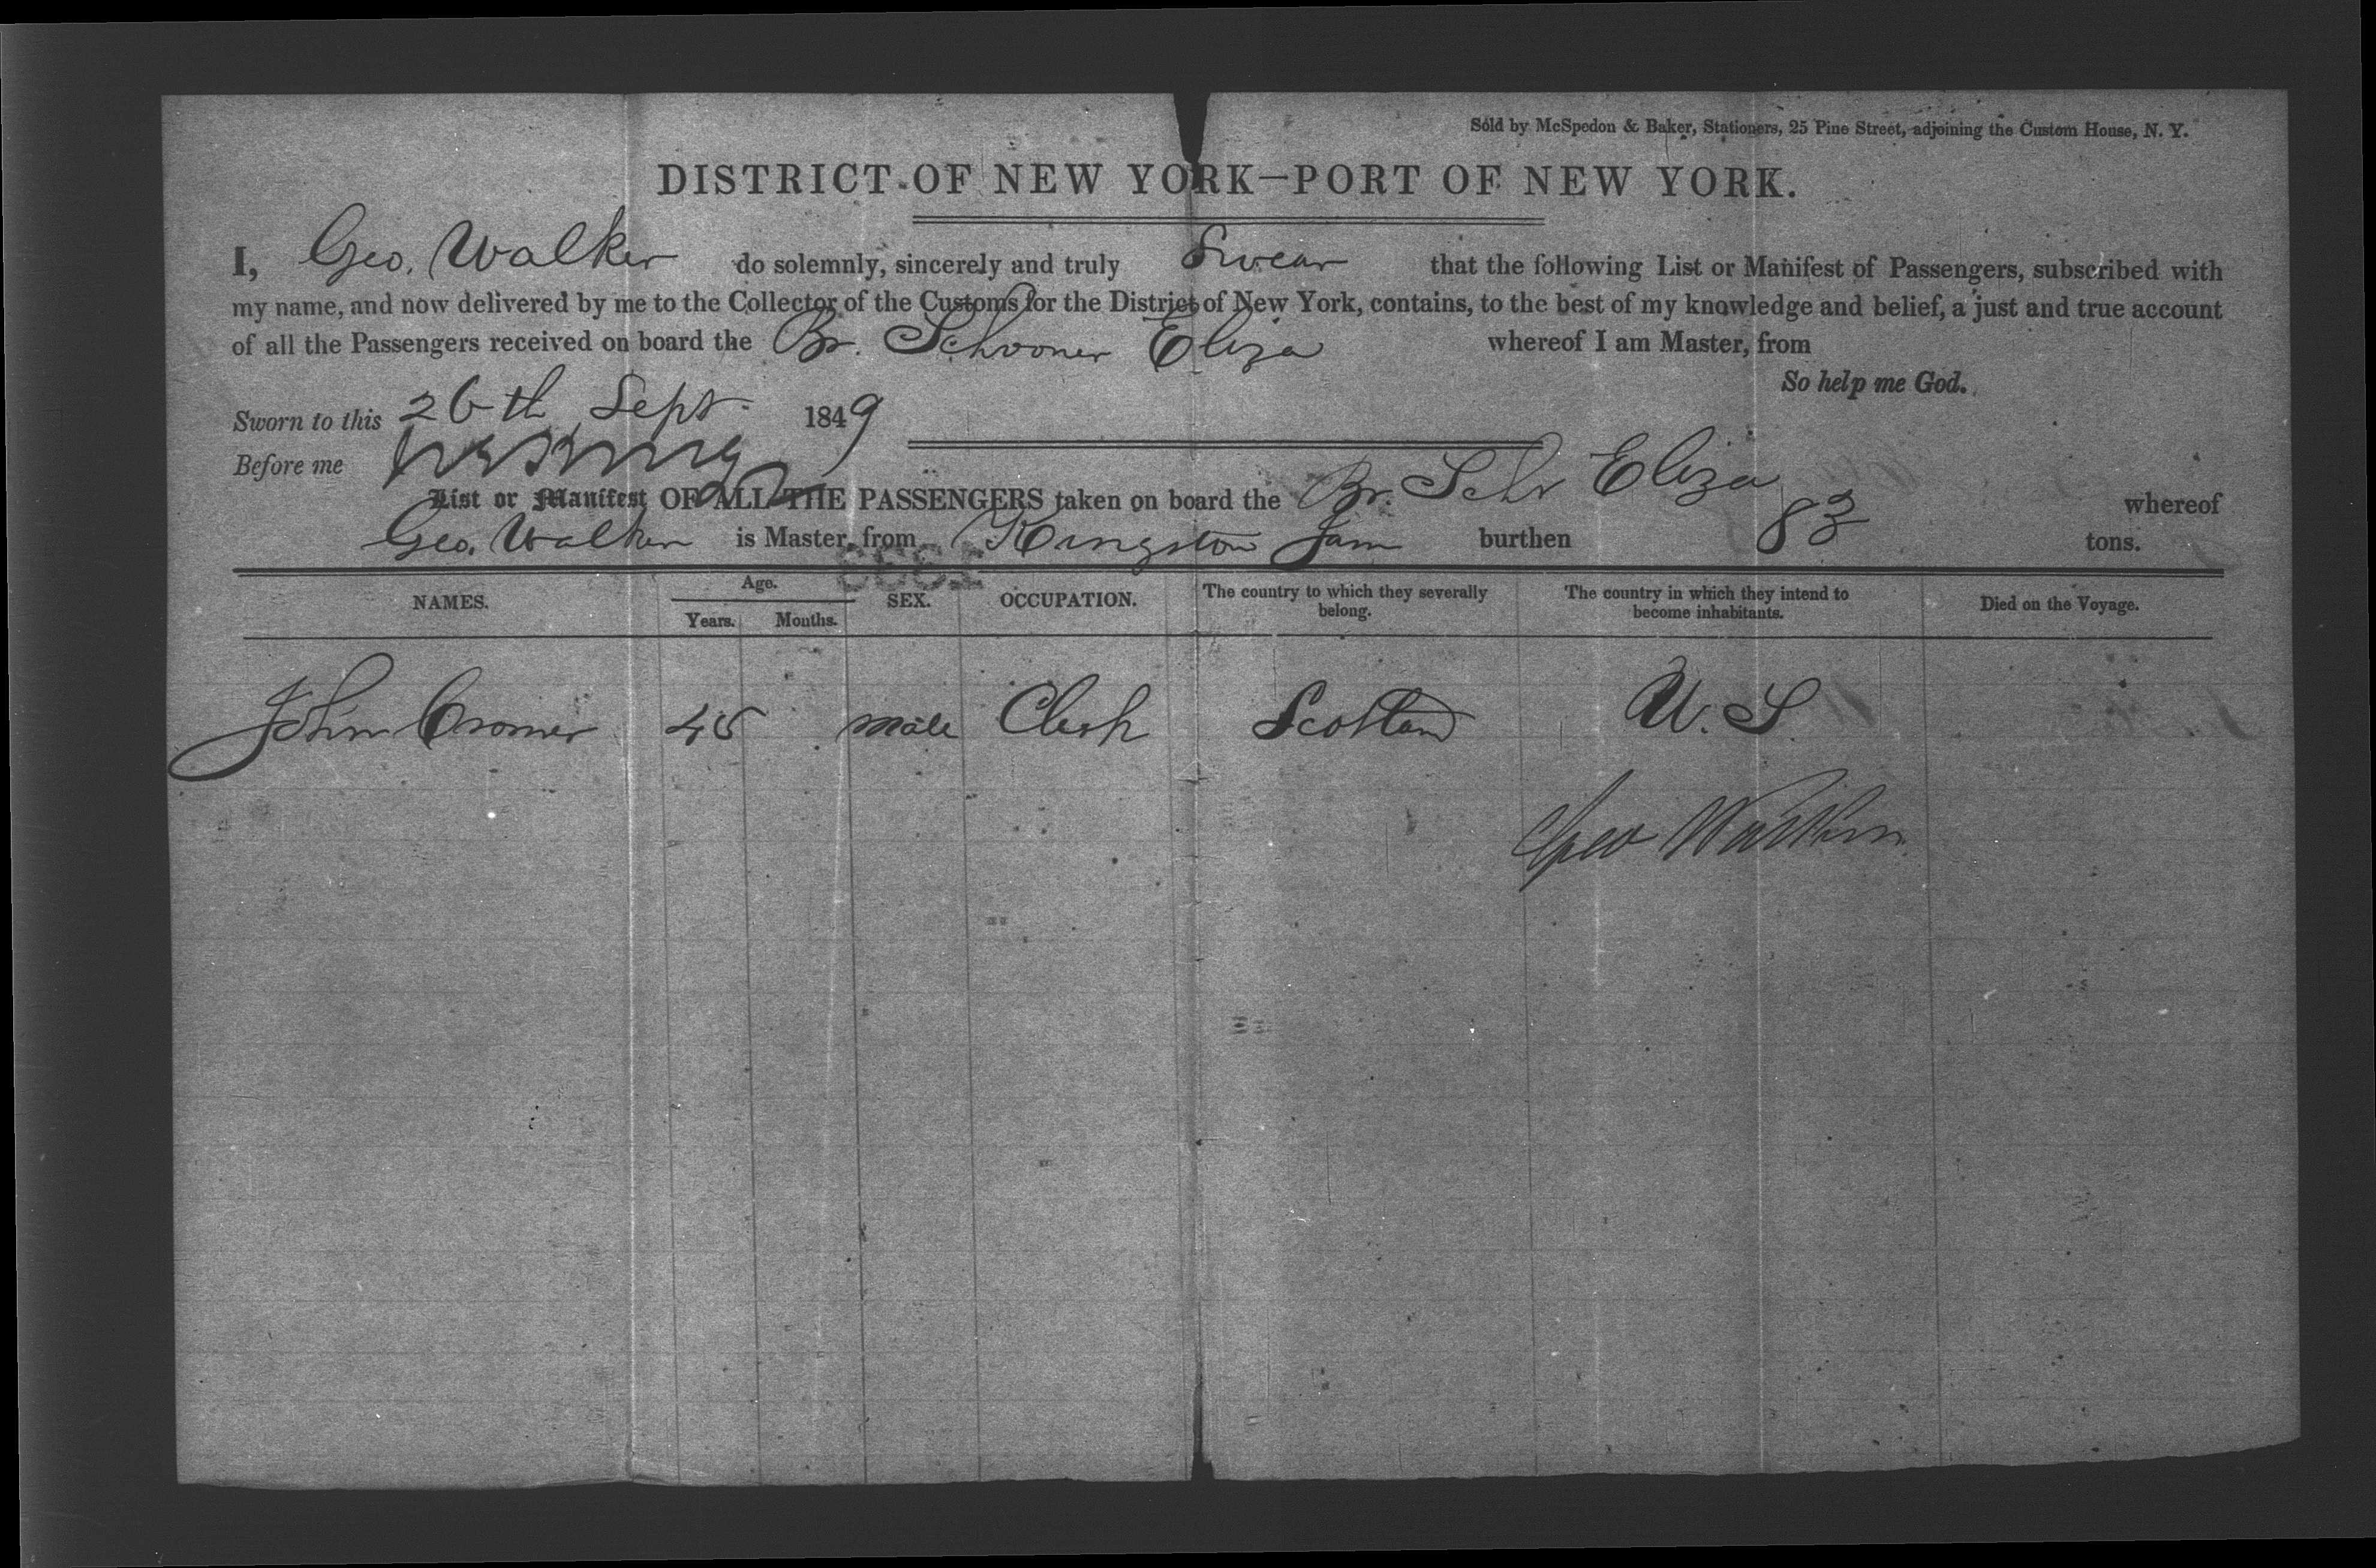 Sold by McSpedon & Baker, Stationers, 25 Pine Street, adjoining the Custom House, N. Y.
DISTRICT OF NEW YORK—PORT OF NEW YORK.
I, Geo. Walker do solemnly, sincerely and truly Swear that the following List or Manifest of Passengers, subscribed with
my name, and now delivered by me to the Collector of the Customs for the District of New York, contains, to the best of my knowledge and belief, a just and true account
of all the Passengers received on board the Br. Schooner Eliza whereof I am Master, from
So help me God.
Sworn to this 26th Sept. 1849
Before me
List or Manifest OF ALL THE PASSENGERS taken on board the Br. Schr Eliza whereof
Geo. Walker is Master, from Kingston Jam burthen 83 tons.
NAMES. Age. Years. Months. SEX. OCCUPATION. The country to which they severally belong. The country in which they intend to become inhabitants. Died on the Voyage.
John Cromer 45 male Clerk Scotland U. S.
Geo Walker